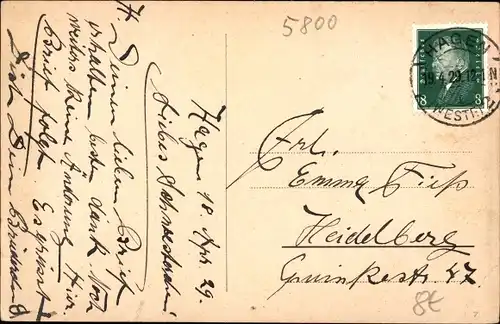 Hagen 18 Apr. 29.
Liebes Schwesterchen!
Deinen lieben Brief
erhalten besten Dank Noch
weiter keine Änderung hier.
Brief folgt Es grüsst
Dich Dein Brüderchen
5800
HAGEN
19.4.29.12-1 N
(WESTF.)
8 8
Frl.
Emma Fieß
Heidelberg
47
8€